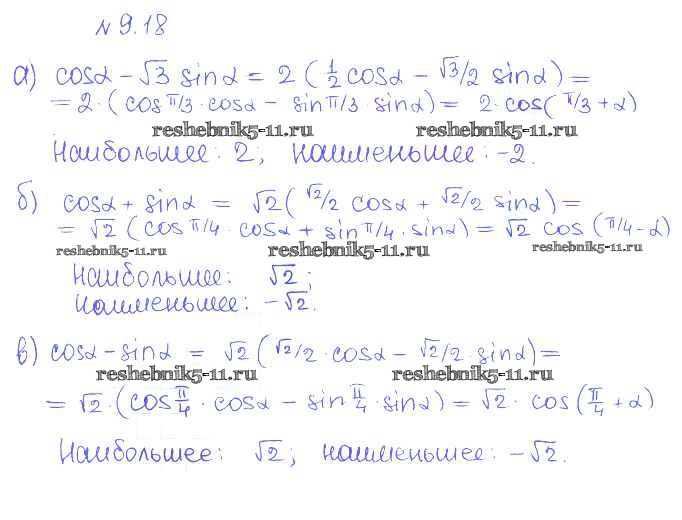 № 9.18
а) cosα - √3 sinα = 2 ( 1/2 cosα - √3/2 sinα) =
= 2 · ( cos π/3 · cosα - sin π/3 · sinα) = 2 · cos( π/3 + α)
reshebnik5-11.ru reshebnik5-11.ru
Наибольшее: 2; наименьшее: -2.
б) cosα + sinα = √2 ( √2/2 cosα + √2/2 sinα) =
= √2 ( cos π/4 · cosα + sin π/4 · sinα) = √2 cos ( π/4 - α)
reshebnik5-11.ru reshebnik5-11.ru reshebnik5-11.ru
Наибольшее: √2;
наименьшее: -√2.
в) cosα - sinα = √2 ( √2/2 · cosα - √2/2 · sinα) =
reshebnik5-11.ru reshebnik5-11.ru
= √2 · ( cos π/4 · cosα - sin π/4 · sinα) = √2 · cos ( π/4 + α)
Наибольшее: √2; наименьшее: -√2.